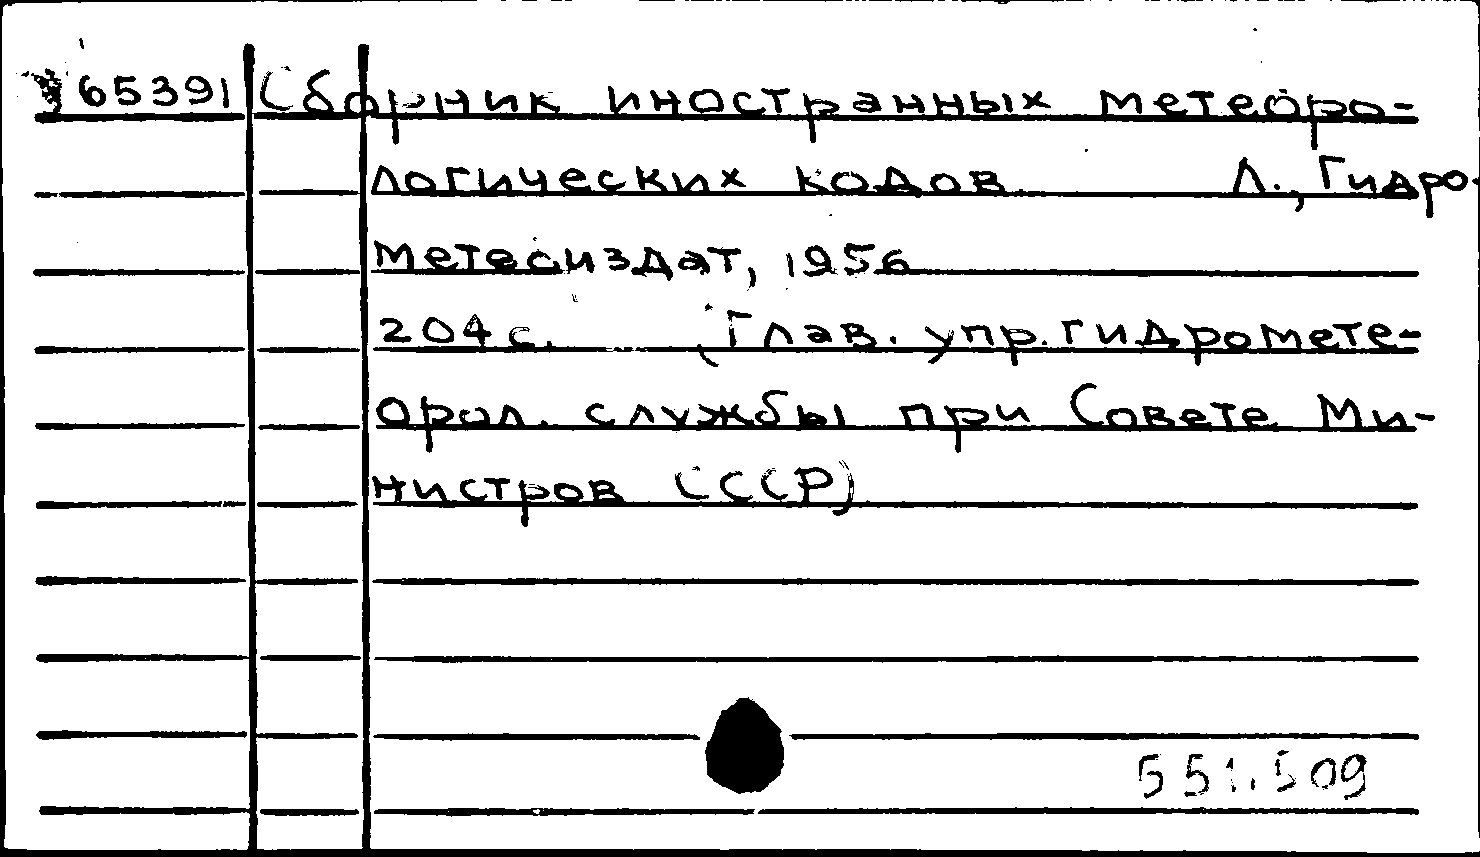 65391 Сборник иностранных метеоро-
логических кодов Л., Гидро-
метеоиздат, 1956
204 с. (Глав. упр. гидромете-
орол. службы при Совете Ми-
нистров СССР)
551.509